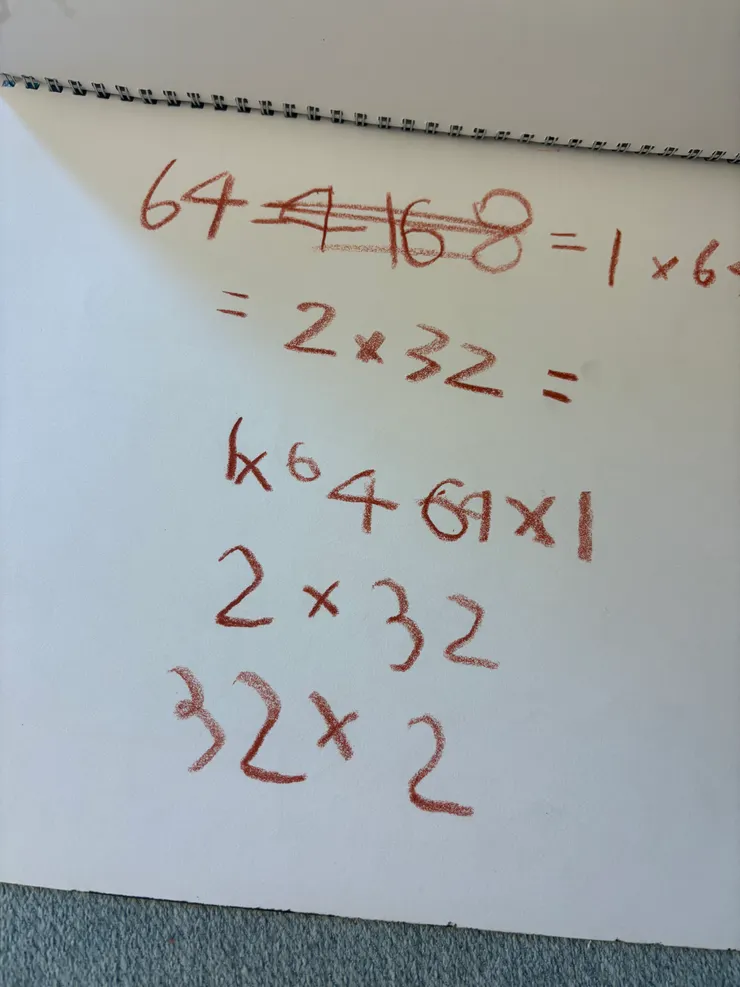 64 = 4 16 8 = 1 × 64
= 2 × 32 =
1× 64 64×1
2 × 32
32 × 2